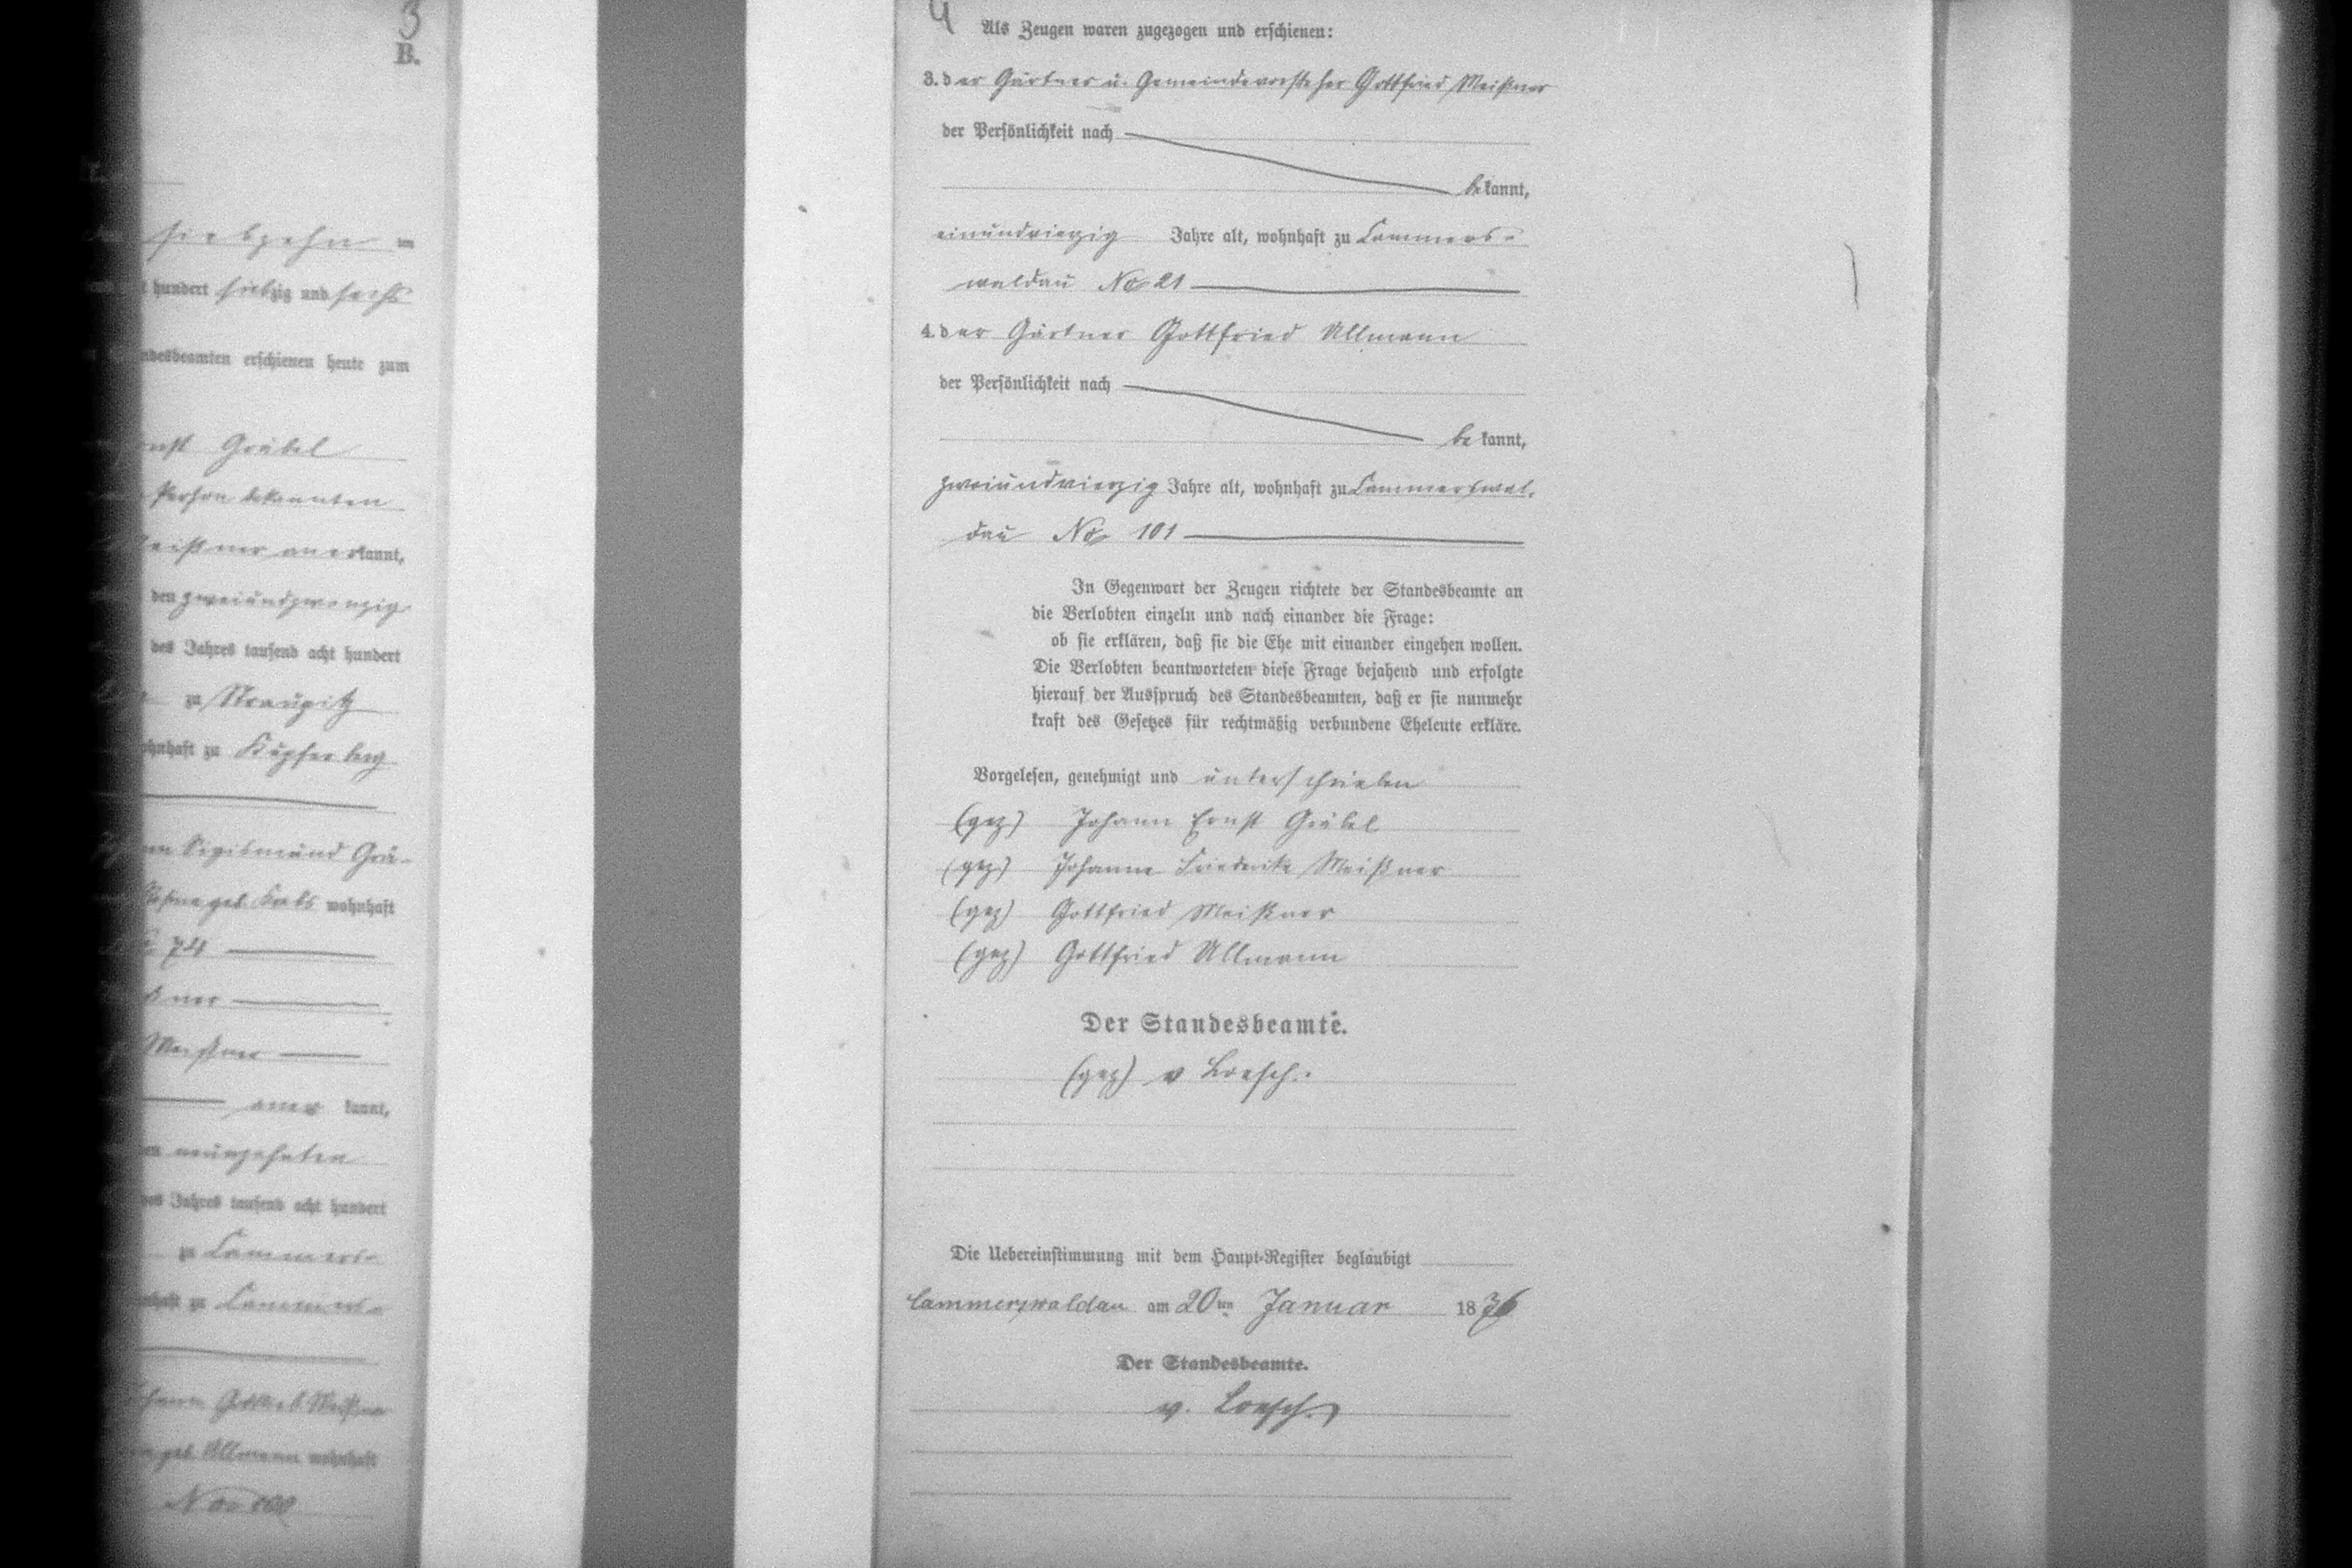 3
B.
siebzehn im
hundert siebzig und sechs
erschienen heute zum
Ernst Gräbel
Person bekannten
anerkannt,
den zweiundzwanzig
des Jahres tausend acht hundert
zu Straupitz
wohnhaft zu Kupferberg
Sigismund Grä-
geb. Krebs wohnhaft
74
Meißner
aner kannt,
neunzehnten
des Jahres tausend acht hundert
zu Cammers-
zu Cammers-
Meißner
geb. Ullmann wohnhaft
No 100
4
Als Zeugen waren zugezogen und erschienen:
3. der Gärtner u. Gemeindevorsteher Gottfried Meißner
der Persönlichkeit nach
bekannt,
einundvierzig Jahre alt, wohnhaft zu Cammers-
waldau No 21
4. der Gärtner Gottfried Ullmann
der Persönlichkeit nach
be kannt,
zweiundvierzig Jahre alt, wohnhaft zu Cammerswal-
dau No 101
In Gegenwart der Zeugen richtete der Standesbeamte an
die Verlobten einzeln und nach einander die Frage:
ob sie erklären, daß sie die Ehe mit einander eingehen wollen.
Die Verlobten beantworteten diese Frage bejahend und erfolgte
hierauf der Ausspruch des Standesbeamten, daß er sie nunmehr
kraft des Gesetzes für rechtmäßig verbundene Eheleute erkläre.
Vorgelesen, genehmigt und unterschrieben
(gez) Johann Ernst Gräbel
(gez) Johanne Friederike Meißner
(gez) Gottfried Meißner
(gez) Gottfried Ullmann
Der Standesbeamte.
(gez) v Loesch.
Die Uebereinstimmung mit dem Haupt-Register beglaubigt
Cammerswaldau am 20ten Januar 1876
Der Standesbeamte.
v. Loesch.